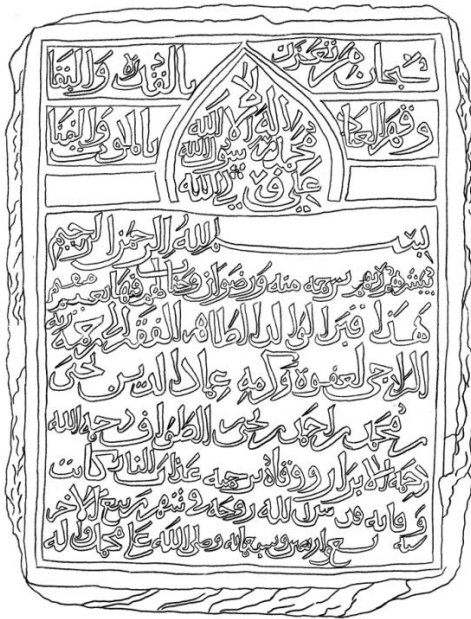 سبحان من تعزز بالقدرة والبقا
وقهر العباد بالموت والفنا
لا اله الا الله
محمد رسول الله
علي ولي الله
بسم الله الرحمن الرحيم
يبشرهم ربهم برحمه منه ورضوان وجنات لهم فيها نعيم مقيم
هذا قبر الطاهر الفقير الى رحمة
الله الراجي لعفوه وكرمه عماد الدين يحيى
بن محمد بن احمد بن يحيى الطواف رحمه الله
رحمة الابرار ووقاه برحمته عذاب النار كانت
وفاته قدس الله روحه في شهر ربيع الاخر
سنه واربعين وسبعمائه وصلى الله على محمد واله